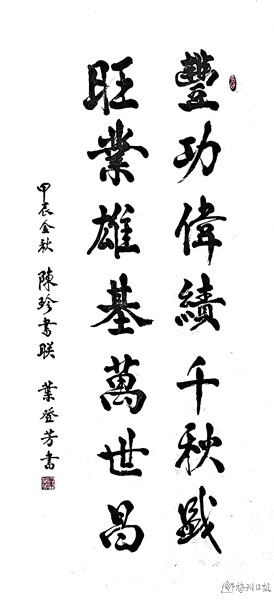 豐功偉績千秋
旺業雄基萬世昌
甲辰金秋 陳珍書联 葉登芳書
梅州日报